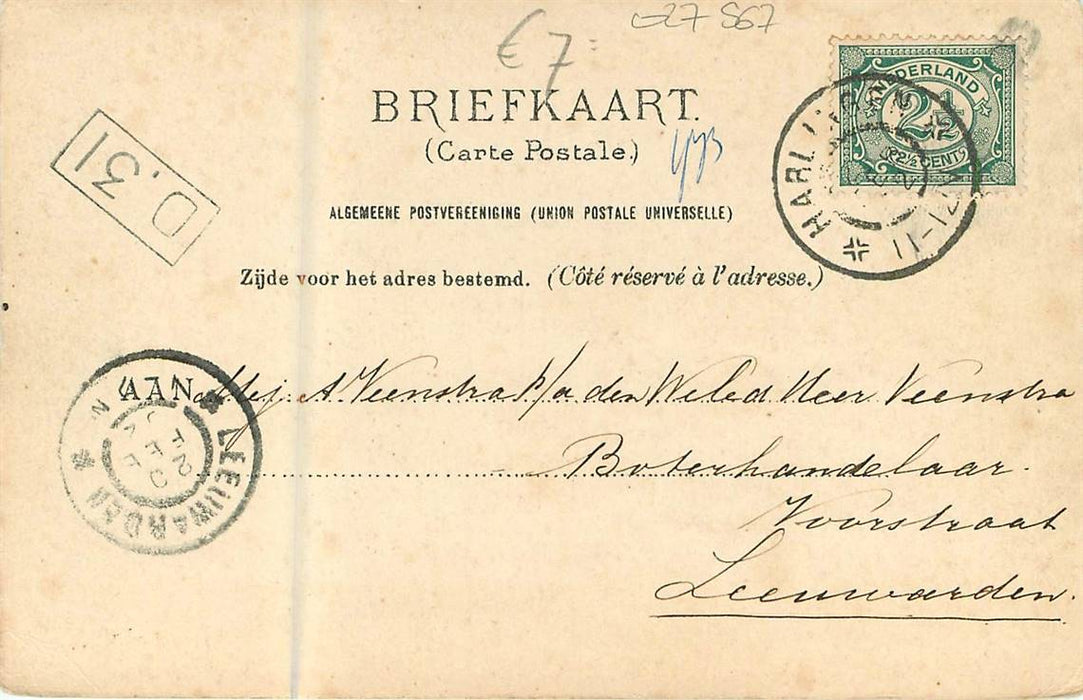 027 567
€ 7=
BRIEFKAART.
(Carte Postale.)
ALGEMEENE POSTVEREENIGING (UNION POSTALE UNIVERSELLE)
Zijde voor het adres bestemd. (Côté réservé à l'adresse.)
D.31
NEDERLAND
2½
(2½ CENT)
HARLI
11-12
AAN Mej. A Veenstra p/a den Weled Heer Veenstra
Boterhandelaar.
Voorstraat
Leeuwarden.
LEEUWARDEN
FEB